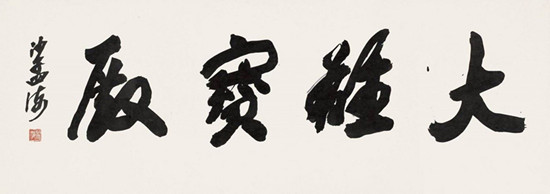 大雄寶殿
沙孟海